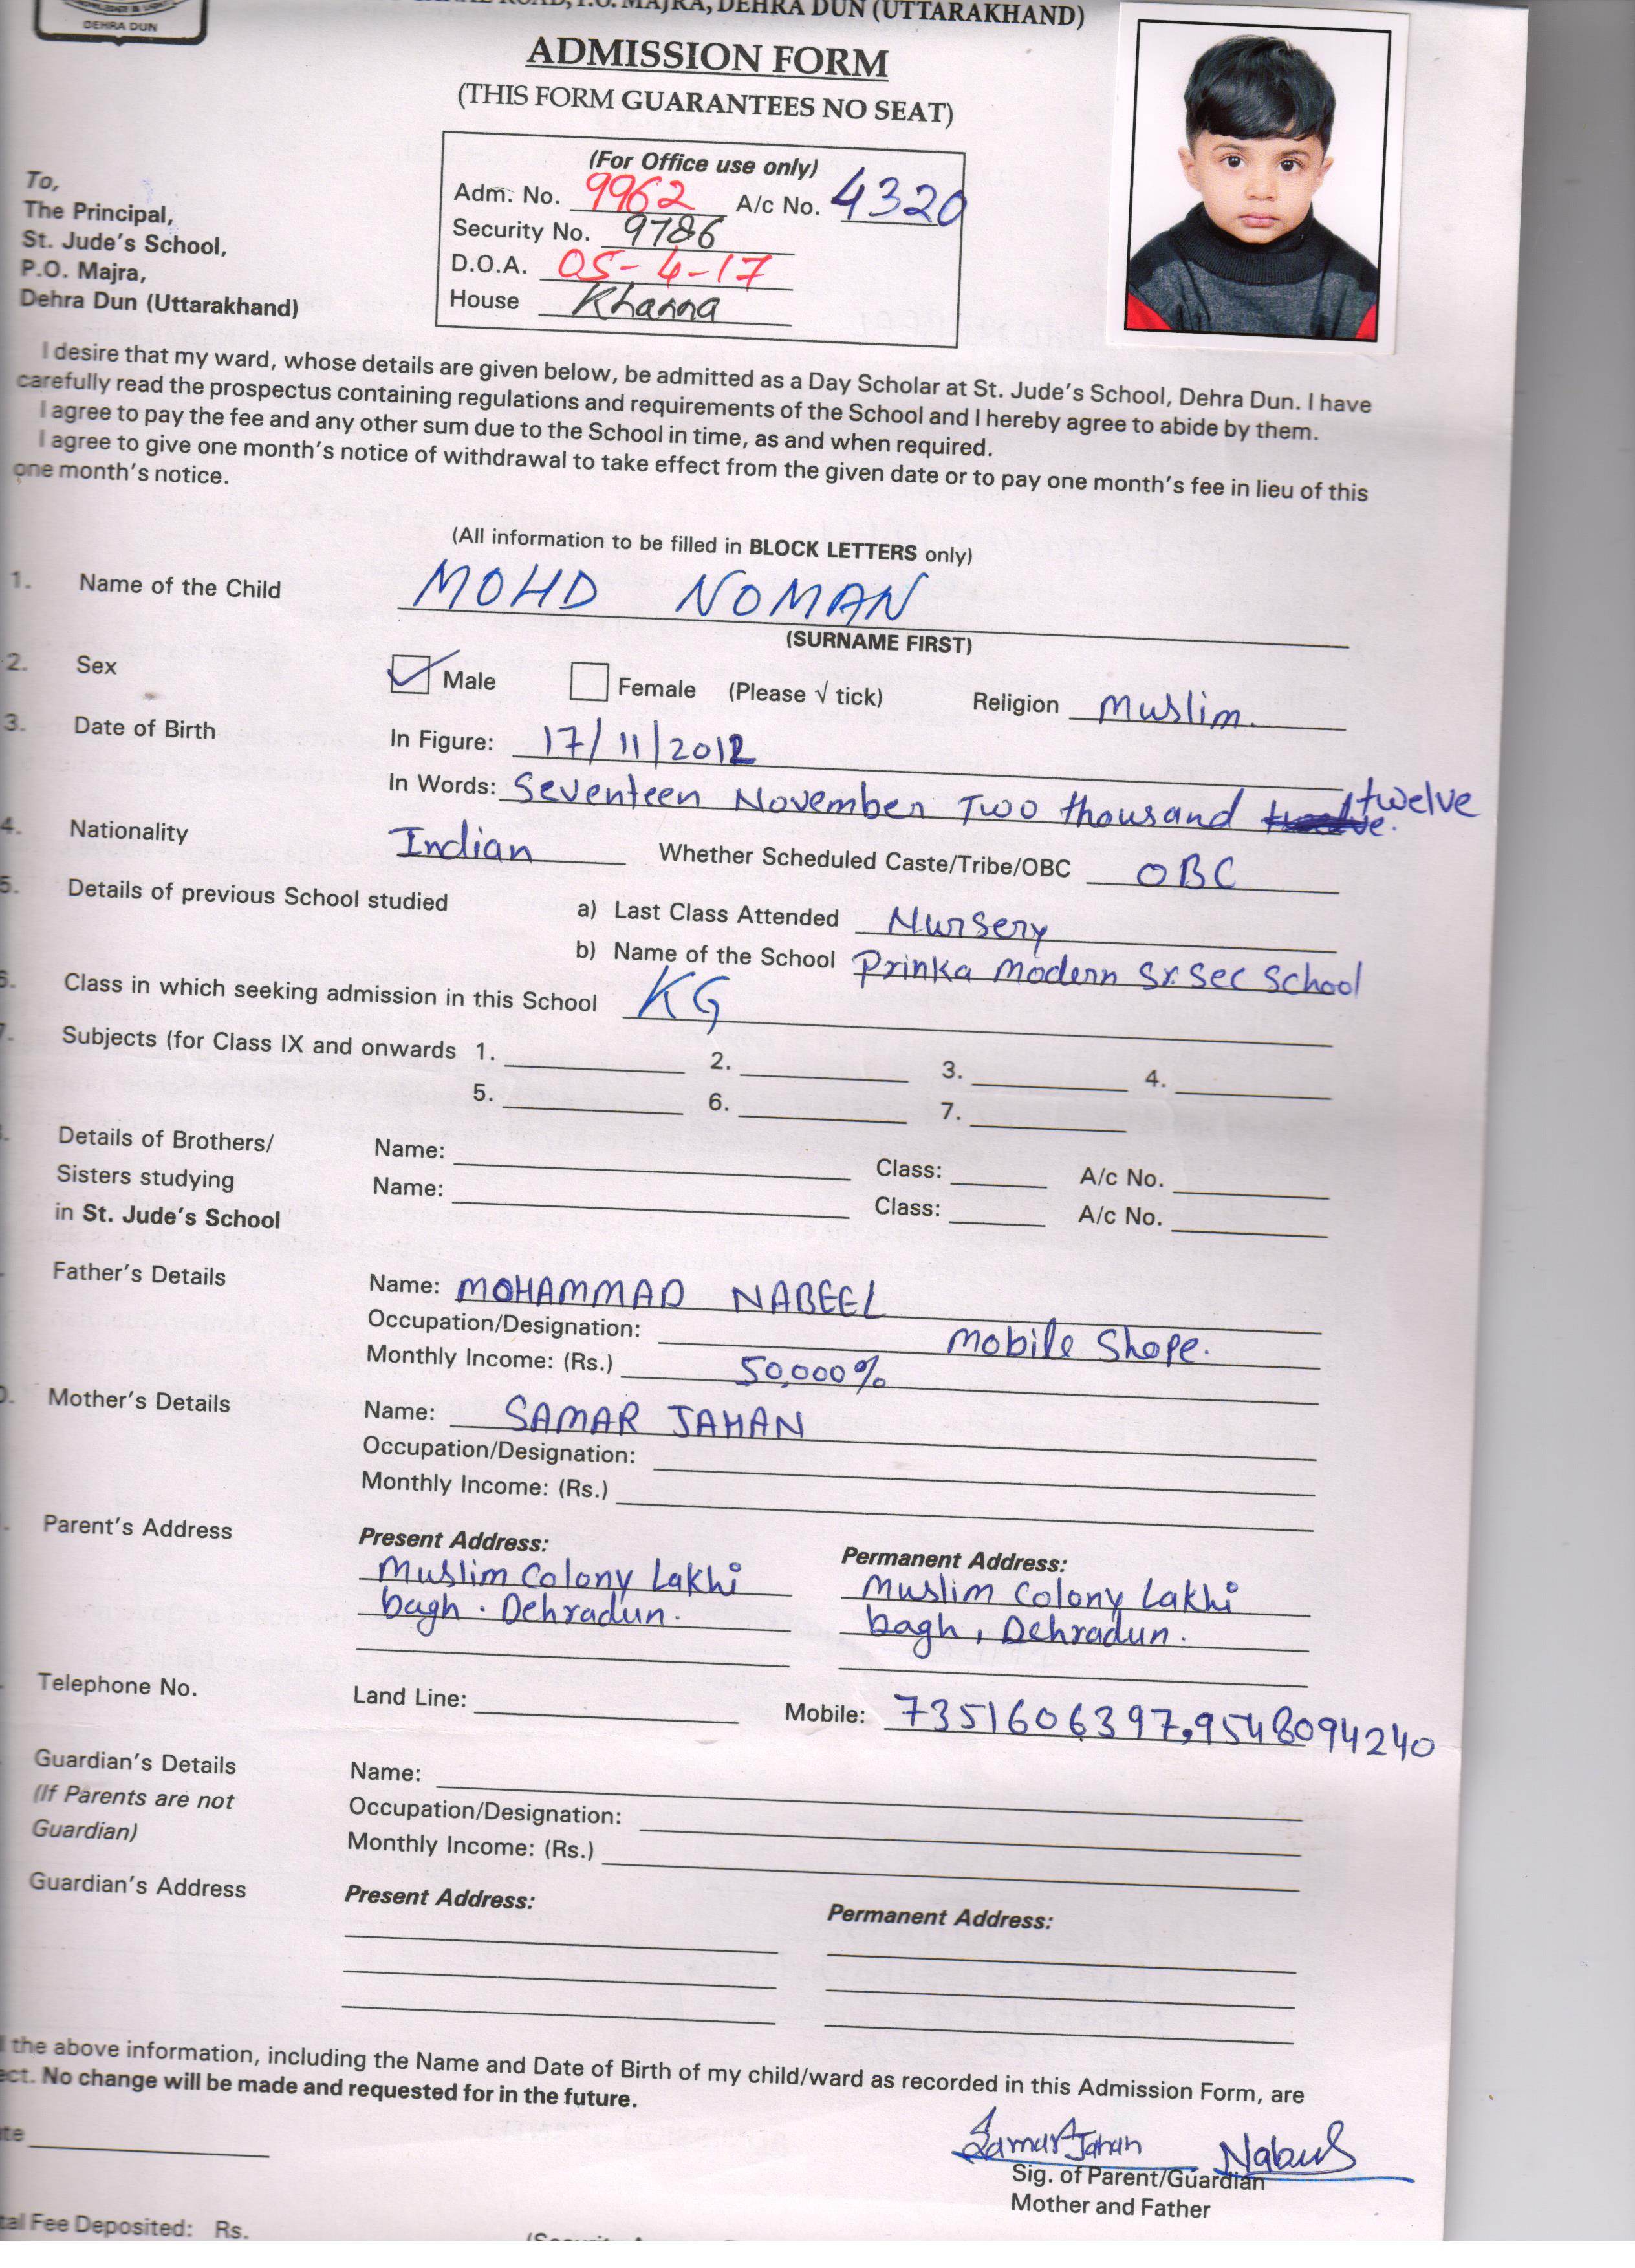 DEHRA DUN
ROAD, P.O. MAJRA, DEHRA DUN (UTTARAKHAND)
ADMISSION FORM
(THIS FORM GUARANTEES NO SEAT)
(For Office use only)
Adm. No. 9962 A/c No. 4320
Security No. 9786
D.O.A. 05-4-17
House Khanna
To,
The Principal,
St. Jude's School,
P.O. Majra,
Dehra Dun (Uttarakhand)
I desire that my ward, whose details are given below, be admitted as a Day Scholar at St. Jude's School, Dehra Dun. I have
carefully read the prospectus containing regulations and requirements of the School and I hereby agree to abide by them.
I agree to pay the fee and any other sum due to the School in time, as and when required.
I agree to give one month's notice of withdrawal to take effect from the given date or to pay one month's fee in lieu of this
one month's notice.
(All information to be filled in BLOCK LETTERS only)
1. Name of the Child MOHD NOMAN
(SURNAME FIRST)
2. Sex Male Female (Please √ tick) Religion Muslim.
3. Date of Birth In Figure: 17/11/2012
In Words: Seventeen November Two thousand twelve
4. Nationality Indian Whether Scheduled Caste/Tribe/OBC OBC
5. Details of previous School studied a) Last Class Attended Nursery
b) Name of the School Prinka Modern Sr. Sec School
6. Class in which seeking admission in this School KG
7. Subjects (for Class IX and onwards 1. 2. 3. 4.
5. 6. 7.
Details of Brothers/ Name: Class: A/c No.
Sisters studying Name: Class: A/c No.
in St. Jude's School
Father's Details Name: MOHAMMAD NABEEL
Occupation/Designation: Mobile Shope.
Monthly Income: (Rs.) 50,000%
Mother's Details Name: SAMAR JAHAN
Occupation/Designation:
Monthly Income: (Rs.)
Parent's Address Present Address: Permanent Address:
Muslim Colony Lakhi Muslim Colony Lakhi
bagh. Dehradun. bagh, Dehradun.
Telephone No. Land Line: Mobile: 7351606397,9548094240
Guardian's Details Name:
(If Parents are not Occupation/Designation:
Guardian) Monthly Income: (Rs.)
Guardian's Address Present Address: Permanent Address:
the above information, including the Name and Date of Birth of my child/ward as recorded in this Admission Form, are
ect. No change will be made and requested for in the future.
te
Samar Jahan Nabeel
Sig. of Parent/Guardian
Mother and Father
tal Fee Deposited: Rs.